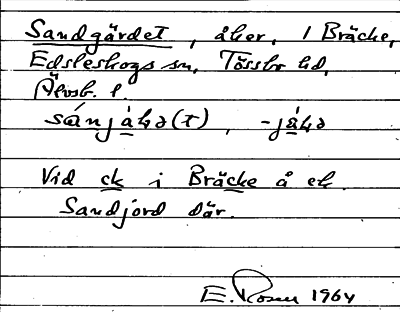 Sandgärdet, åker, 1 Bräcke,
Edsleskogs sn, Tössbo hd,
Älvsb. l.
sánjàɫə(t), -jàɫə
Vid ck i Bräcke å ek.
Sandjord där.
E. Rosén 1964